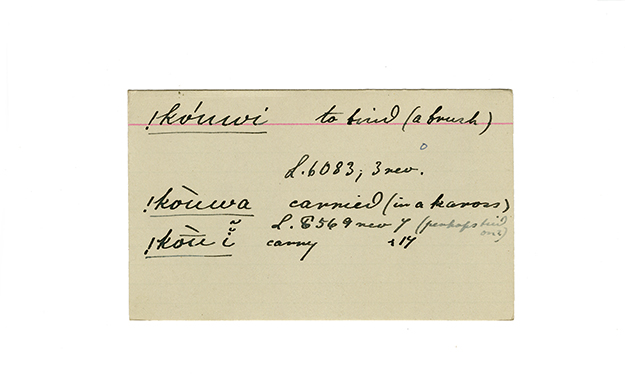 !kóuwi to bind (a brush)
L. 6083; 3 rev.
!kòuwa carried (in a kaross)
L. 6569 rev 7 (perhaps tied on)
!kōu ĩ carry 17